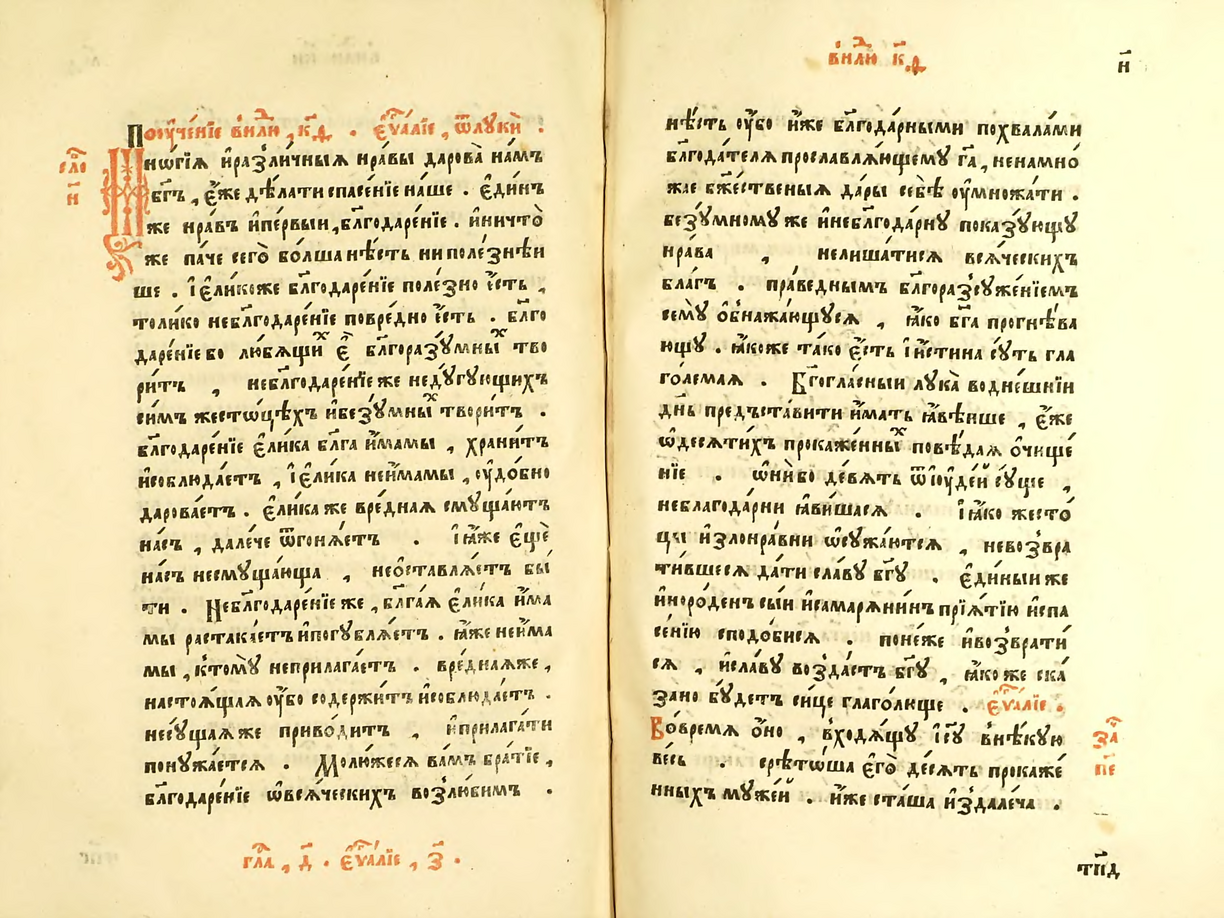 Поꙋче́нїе внл҃ю , к҃д . є҆ѵⷢ҇а́лїе , ѿлꙋкѝ .
сло́
и҃
Мнѡ́гїѧ и҆разли́чныѧ нра́вы дарова̀ на́мъ
бг҃ъ , є҆́же дѣ́лати спасе́нїе на́ше . є҆ди́нъ
же нра́въ и҆пе́рвыи , бл҃годаре́нїе . и҆ничто̀
же па́че сего̀ бо́лша нѣ́сть ни поле́знѣи
ше . і҆є҆ли́коже бл҃годаре́нїе поле́зно є҆́сть ,
толи́ко небл҃годаре́нїе повре́дно є҆́сть . бл҃го
даре́нїе бо лю́бѧщиⷯ є҆̀ бл҃горазꙋ́мныⷯ тво
ри́тъ , небл҃годаре́нїе же недꙋ́гꙋющихъ
си́мъ жесто́цѣхъ и҆безꙋ́мныⷯ твори́тъ .
бл҃годаре́нїе є҆ли́ка бл҃га и҆́мамы , храни́тъ
и҆соблюда́етъ , і҆є҆ли́ка неи҆́мамы , ᲂу҆до́бно
дарова́етъ . є҆ли́ка же вре́днаѧ смꙋща́ютъ
на́съ , дале́че ѿгонѧ́етъ . і҆ꙗ҆́же є҆щѐ
на́съ несмꙋща́юща , неѡ҆ставлѧ́етъ бы́
ти . Небл҃годаре́нїе же , бл҃га́ѧ є҆ли́ка и҆́ма
мы растака́етъ и҆погꙋблѧ́етъ . ꙗ҆́же неи҆́ма
мы , ктомꙋ̀ неприлага́етъ . вре́днаѧ же ,
настоѧ́щаѧ ᲂу҆́бо содержи́тъ и҆соблюда́етъ .
несꙋ́щаѧ же приво́дитъ , и҆прилага́ти
понꙋжа́етсѧ . Молю́жесѧ ва́мъ бра́тїе ,
бл҃годаре́нїе ѡ҆всѧ́ческихъ возлю́бимъ .
гла́ , д҃ . є҆ѵⷢ҇а́лїе , з҃ .
внл҃ю к҃д
и҃
нѣ́сть ᲂу҆́бо и҆́же бл҃года́рными похвала́ми
бл҃года́телѧ прославлѧ́ющемꙋ гд҃а , ненамно́
жае бж҃е́ственыѧ да́ры себѣ̀ ᲂу҆множа́ти .
безꙋ́мномꙋ же и҆небл҃года́рнꙋ показꙋ́ющꙋ
нра́ва , нелиша́тисѧ всѧ́ческихъ
бла́гъ . пра́веднымъ бл҃горазсꙋже́нїемъ
семꙋ̀ ѡ҆бнажа́ющꙋсѧ , ꙗ҆́ко бг҃а прогнѣ́ва
ющꙋ . ꙗ҆́коже та́ко є҆́сть і҆и҆́стина сꙋ́ть гла
го́лемаѧ . Бг҃огла́сныи лꙋка̀ воднѣ́шнїи
дн҃ь предъста́вити и҆́мать ꙗ҆́внѣише , є҆́же
ѡ҆десѧти́хъ прокаже́нныⷯ повѣ́даѧ ѡ҆чище́
нїе . ѡ҆ни́бо де́вѧть ѿі҆ꙋде́й сꙋ́ще ,
неблагода́рни ꙗ҆ви́шасѧ . і҆ꙗ҆́ко жесто́
цы и҆злонра́вни ѡ҆сꙋжа́ютсѧ , невозвра
ти́вшесѧ да́ти сла́вꙋ бг҃ꙋ . є҆ди́ныи же
и҆норо́денъ сы́и и҆самарѧни́нъ прїѧ́тїю и҆спа
се́нїю сподо́бисѧ . поне́же и҆возврати́
сѧ , и҆сла́вꙋ возда́стъ бг҃ꙋ , ꙗ҆́ко же ска́
зано бꙋ́детъ си́це глаго́люще . є҆ѵⷢ҇а́лїе .
Во́времѧ ѻ҆́но , входѧ́щꙋ і҆с҃ꙋ внѣ́кꙋю
за
пе҃
ве́сь . срѣ́тоша є҆го̀ де́сѧть прокаже́
нныхъ мꙋже́й . и҆́же ста́ша и҆здале́ча .
тп҃д